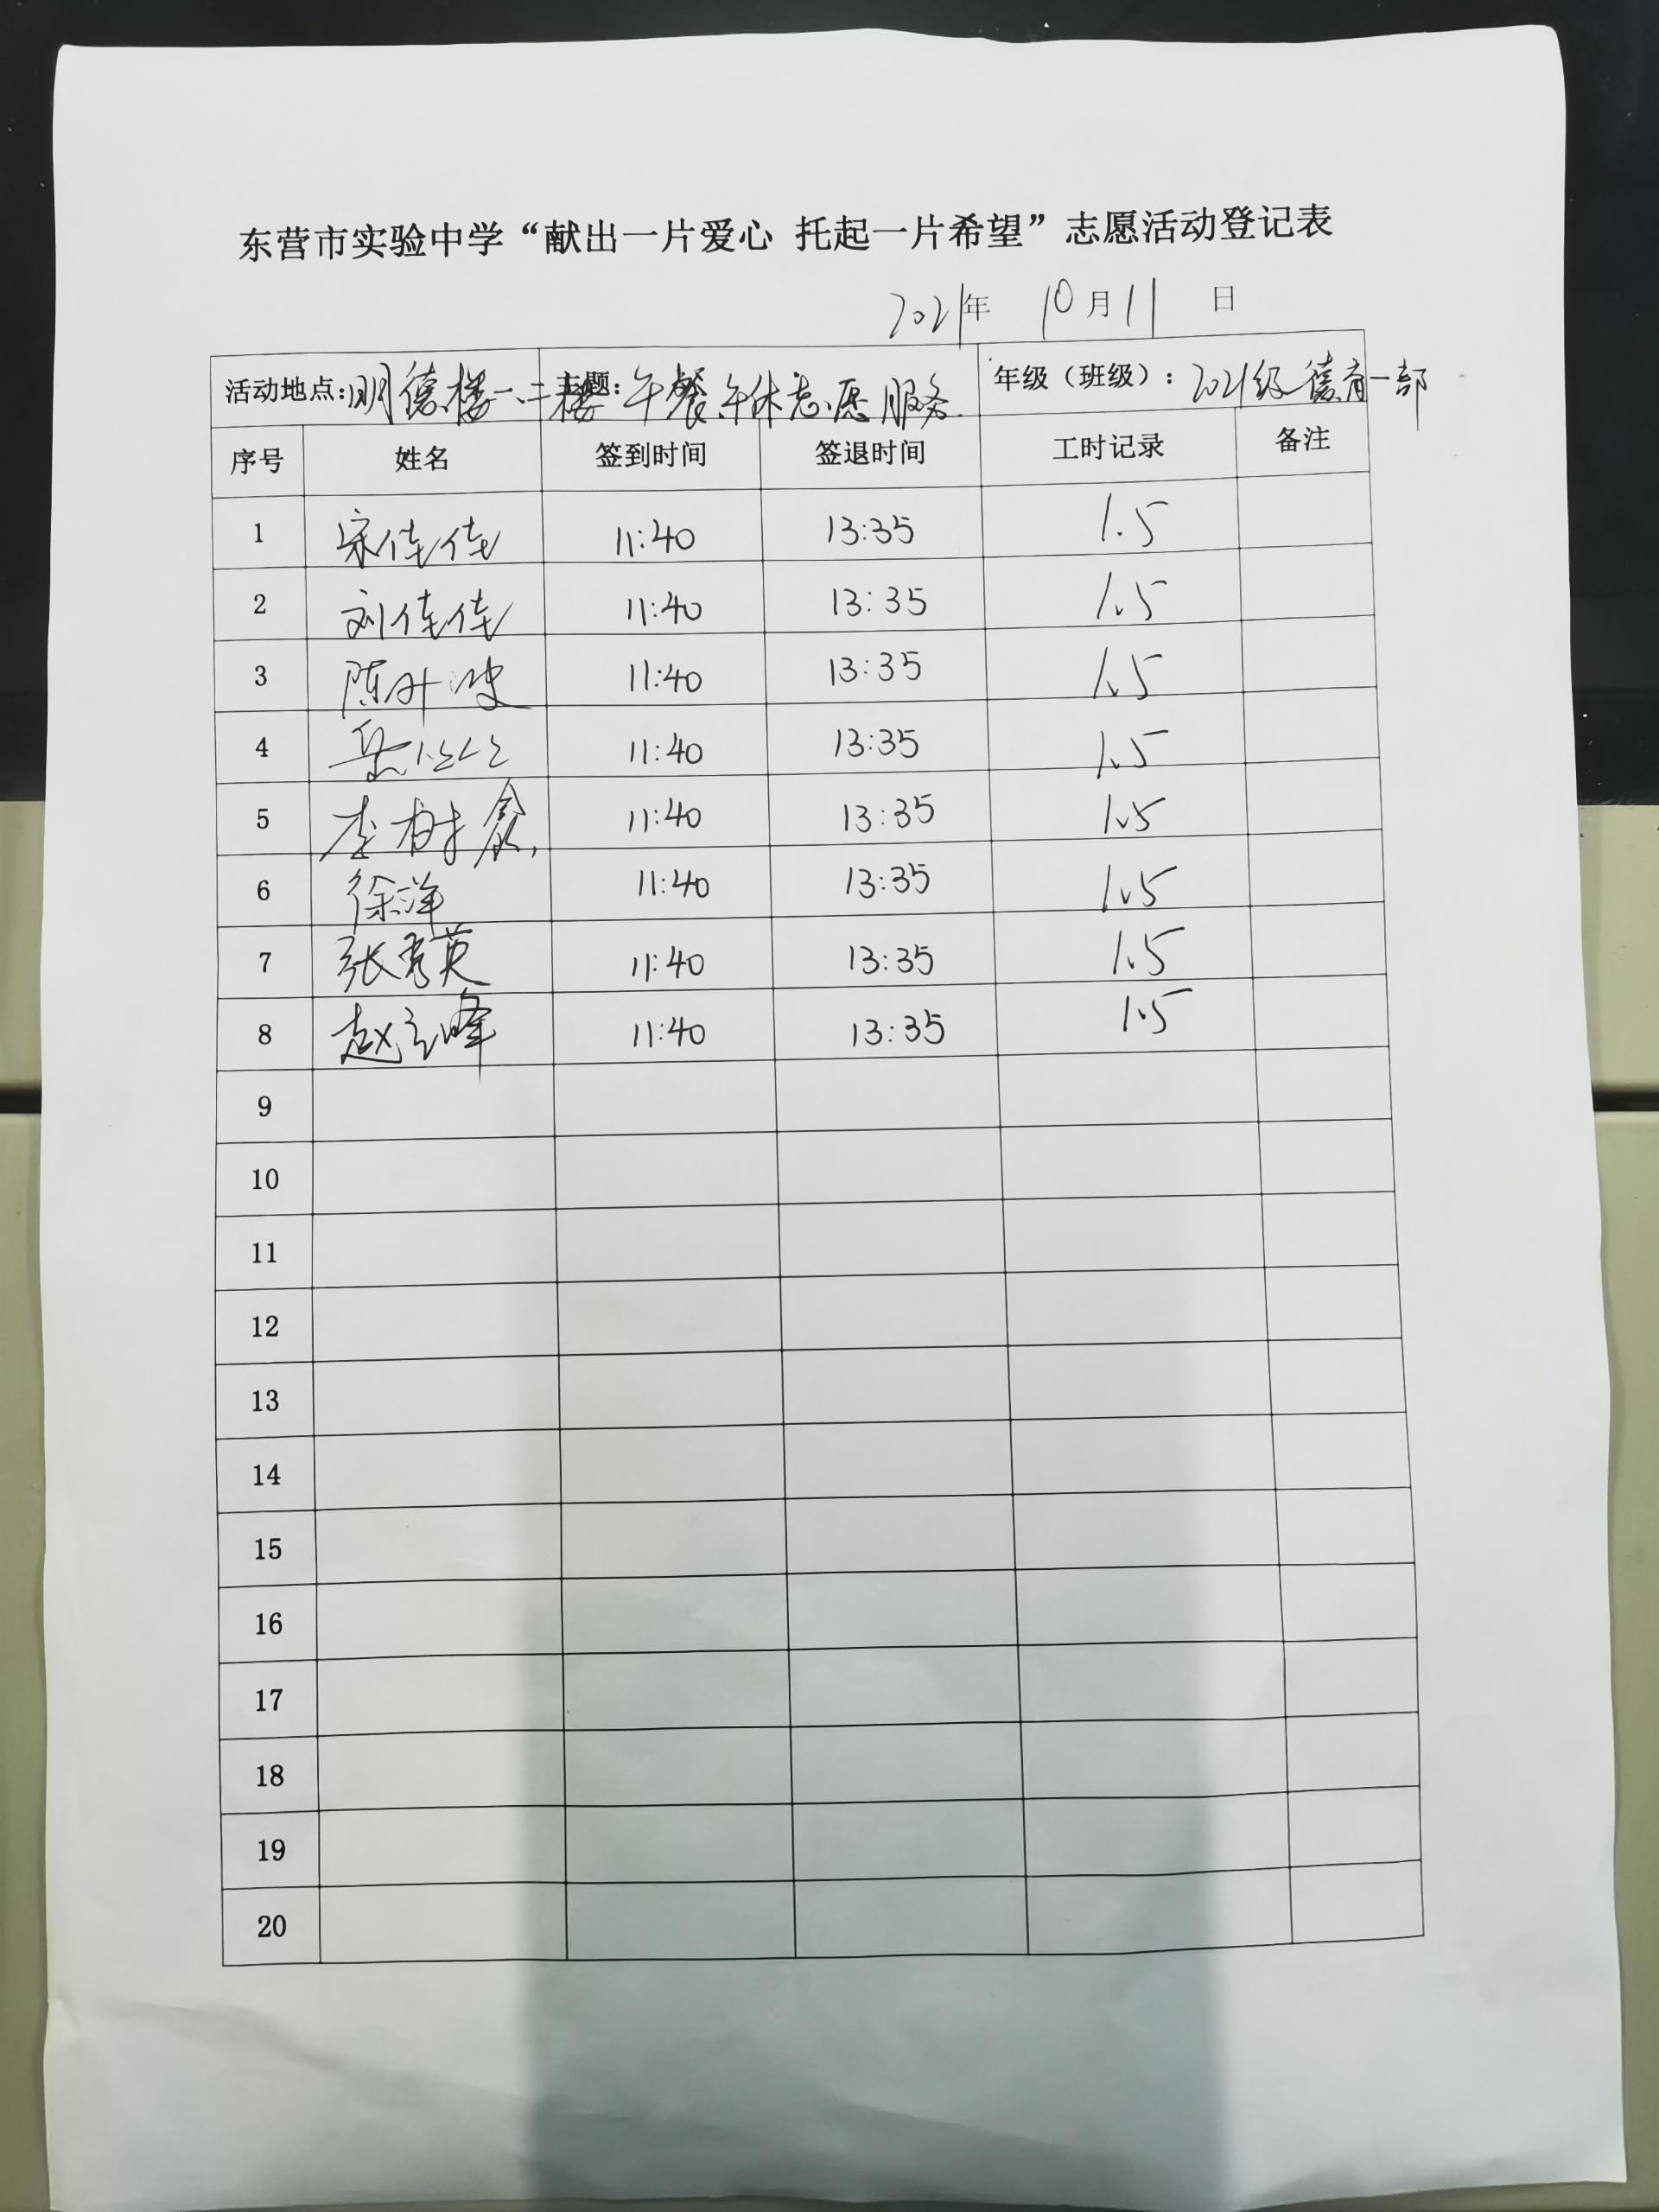 东营市实验中学“献出一片爱心 托起一片希望”志愿活动登记表
2021年 10月11 日
活动地点：明德楼一、二楼 主题：午餐午休志愿服务 年级（班级）：2021级德育一部
序号 姓名 签到时间 签退时间 工时记录 备注
1 宋佳佳 11:40 13:35 1.5
2 刘佳佳 11:40 13:35 1.5
3 陈叶 11:40 13:35 1.5
4 11:40 13:35 1.5
5 李树鑫 11:40 13:35 1.5
6 徐洋 11:40 13:35 1.5
7 张秀英 11:40 13:35 1.5
8 赵立峰 11:40 13:35 1.5
9
10
11
12
13
14
15
16
17
18
19
20